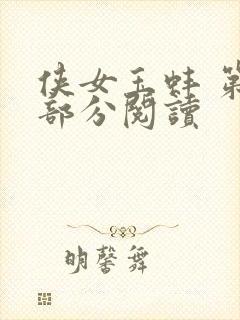 侠女玉蚌 第
部分閱讀
明馨舞